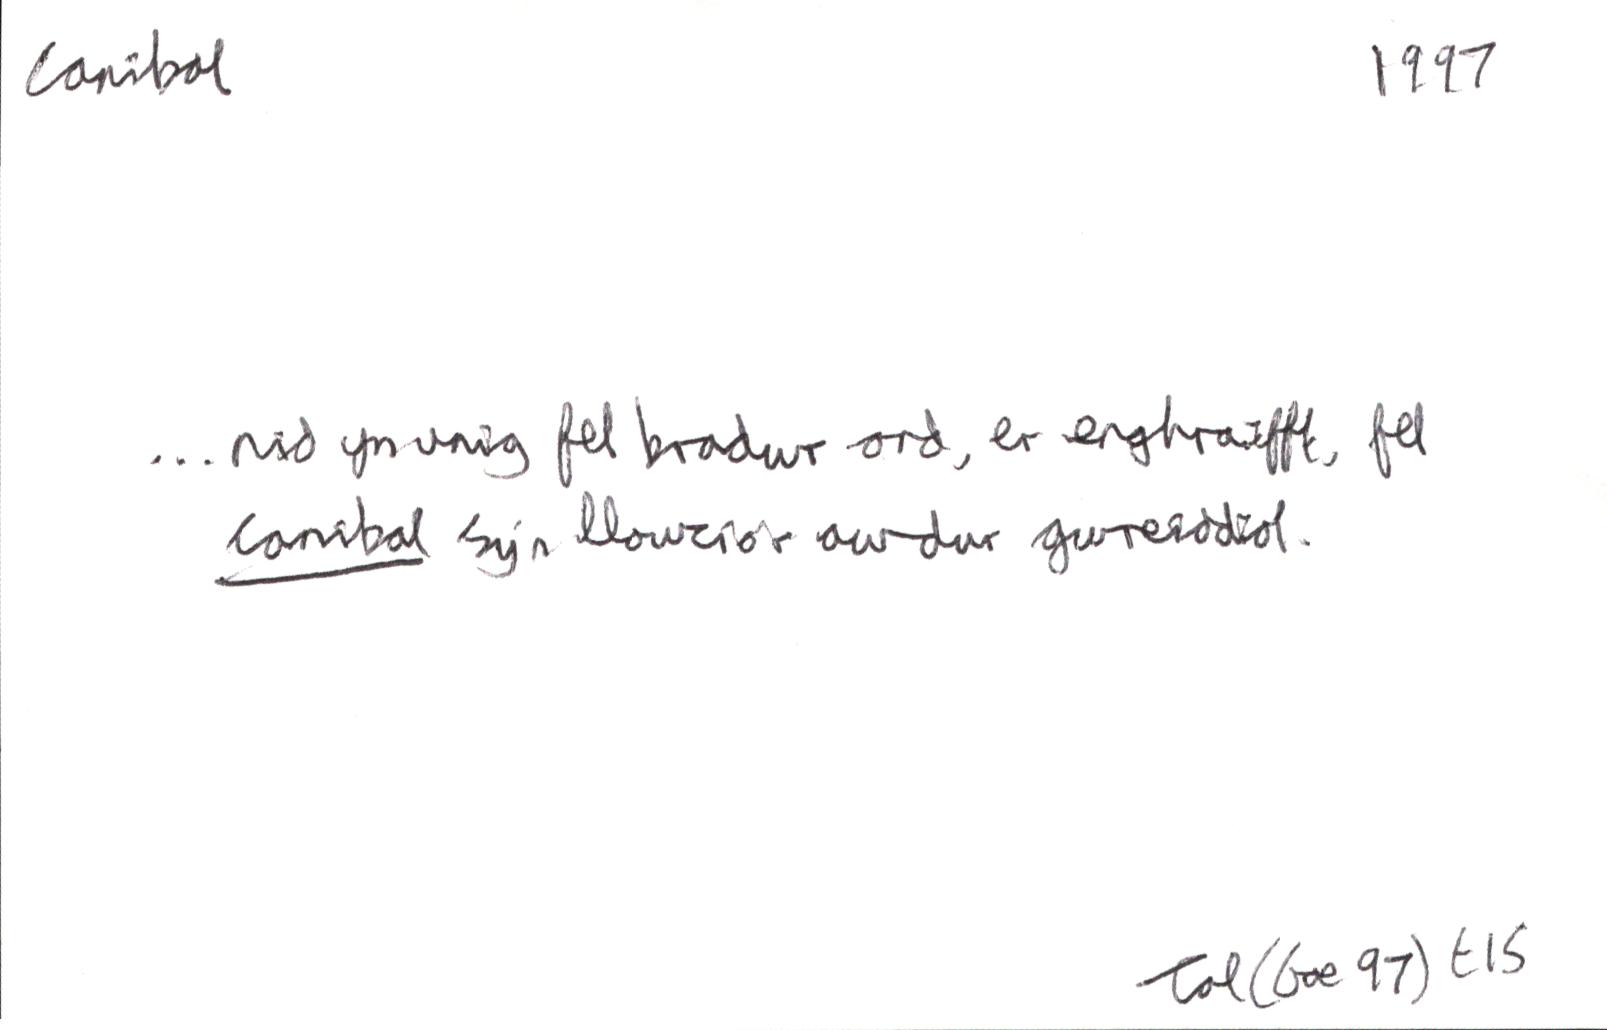 Canibal 1997
... nid yn unig fel bradwr ond, er enghraifft, fel
canibal sy'n llowcio'r awdur gwreiddiol.
Tal (Gae 97) t15